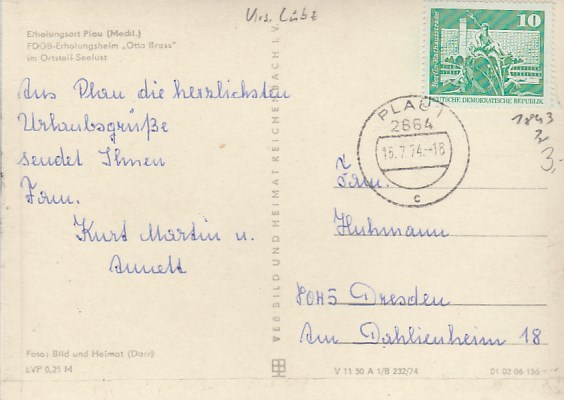 Krs. Lübz
Erholungsort Plau (Meckl.)
FDGB-Erholungsheim „Otto Brass"
im Ortsteil Seelust
Aus Plau die herzlichsten
Urlaubsgrüße
sendet Ihnen
Fam.
Kurt Martin u.
Annett
Foto: Bild und Heimat (Darr)
EVP 0,25 M
VEB BILD UND HEIMAT REICHENBACH I. V.
10
DEUTSCHE DEMOKRATISCHE REPUBLIK
PLAU 1
2864
15.7.74.-18
c
1843
3,-
Fam.
Huhmann
8045 Dresden
Am Dahlienheim 18
V 11 50 A 1/B 232/74
01 03 06 136